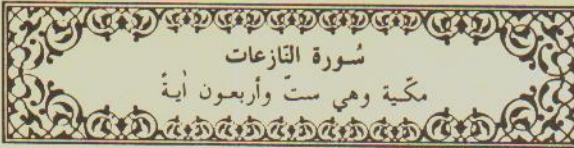 سُورة النّازعات
مكّية وهي ستّ وأربعون أيةً